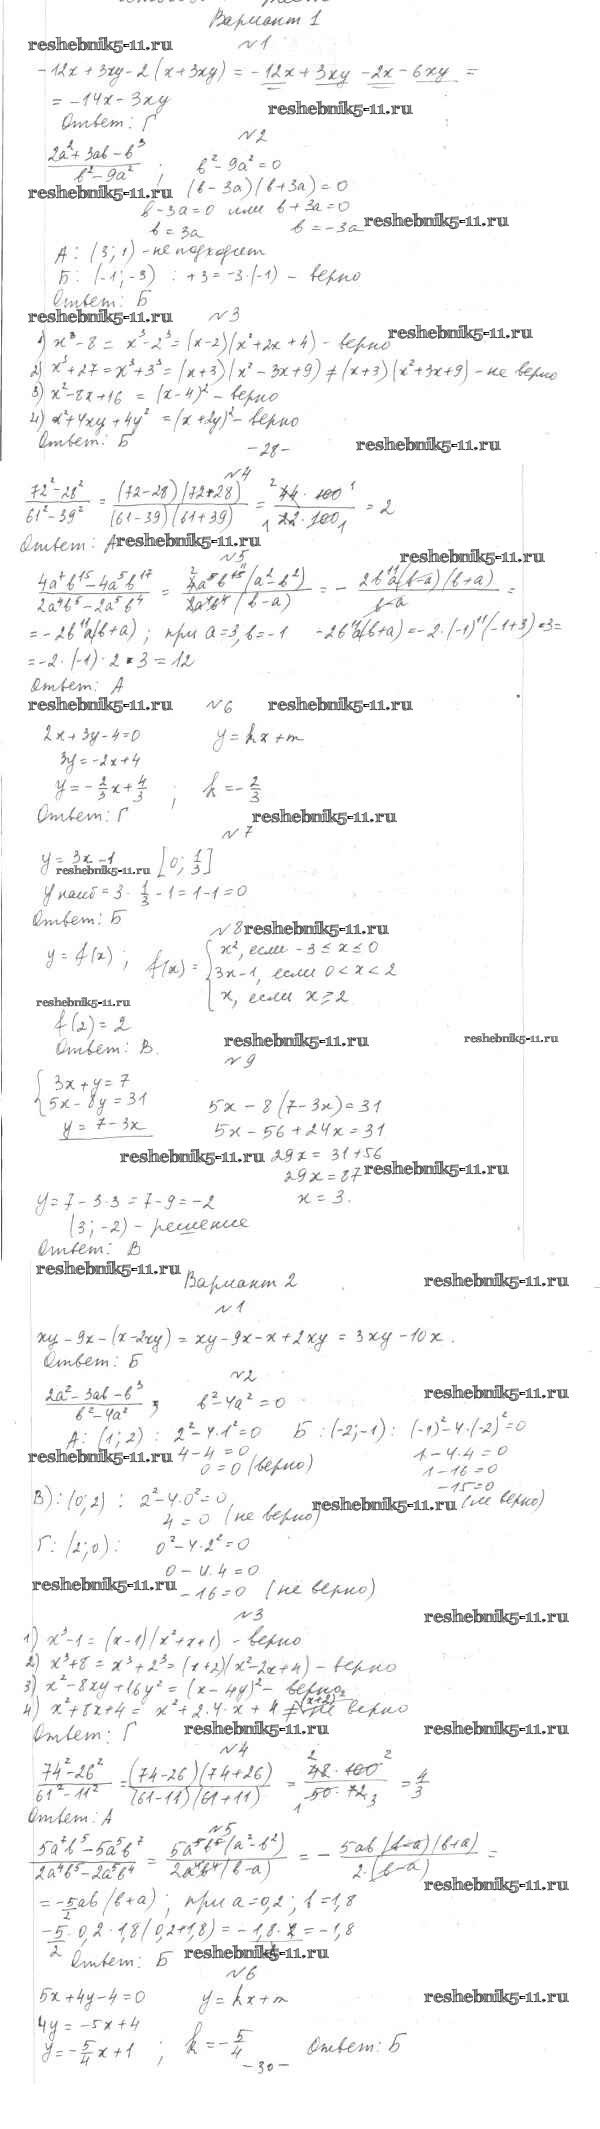 Вариант 1
reshebnik5-11.ru
№1
-12x + 3xy - 2(x + 3xy) = -12x + 3xy - 2x - 6xy =
= -14x - 3xy
reshebnik5-11.ru
Ответ: Г
№2
(2a² + 3ab - b³)/(b² - 9a²) ; b² - 9a² = 0
reshebnik5-11.ru (b - 3a)(b + 3a) = 0
b - 3a = 0 или b + 3a = 0 reshebnik5-11.ru
b = 3a b = -3a
А: (3; 1) - не подходит
Б: (-1; -3) : +3 = -3·(-1) - верно
Ответ: Б
reshebnik5-11.ru №3
1) x³ - 8 = x³ - 2³ = (x - 2)(x² + 2x + 4) - верно reshebnik5-11.ru
2) x³ + 27 = x³ + 3³ = (x + 3)(x² - 3x + 9) ≠ (x + 3)(x² + 3x + 9) - не верно
3) x² - 8x + 16 = (x - 4)² - верно
4) x² + 4xy + 4y² = (x + 2y)² - верно
Ответ: Б
-28- reshebnik5-11.ru
№4
(72² - 28²)/(61² - 39²) = (72 - 28)(72 + 28)/(61 - 39)(61 + 39) = (44 · 100)/(22 · 100) = 2
Ответ: А reshebnik5-11.ru
№5 reshebnik5-11.ru
(4a⁷b¹⁵ - 4a⁵b¹⁷)/(2a⁴b⁵ - 2a⁵b⁴) = 4a⁵b¹⁵(a² - b²)/2a⁴b⁴(b - a) = - 2b¹¹a(b - a)(b + a)/(b - a) =
= -2b¹¹a(b + a) ; при a = 3, b = -1 -2b¹¹a(b + a) = -2·(-1)¹¹(-1 + 3)·3 =
= -2·(-1)·2·3 = 12
Ответ: А
reshebnik5-11.ru №6 reshebnik5-11.ru
2x + 3y - 4 = 0 y = kx + m
3y = -2x + 4
y = -2/3 x + 4/3 ; k = -2/3
Ответ: Г reshebnik5-11.ru
№7
y = 3x - 1 [0; 1/3]
reshebnik5-11.ru
y наиб = 3 · 1/3 - 1 = 1 - 1 = 0
Ответ: Б
№8 reshebnik5-11.ru
y = f(x) ; f(x) = { x², если -3 ≤ x ≤ 0
3x - 1, если 0 < x < 2
x, если x ≥ 2
reshebnik5-11.ru
f(2) = 2
Ответ: В. reshebnik5-11.ru reshebnik5-11.ru
№9
{ 3x + y = 7
5x - 8y = 31 5x - 8(7 - 3x) = 31
y = 7 - 3x 5x - 56 + 24x = 31
reshebnik5-11.ru 29x = 31 + 56
29x = 87 reshebnik5-11.ru
y = 7 - 3·3 = 7 - 9 = -2 x = 3.
(3; -2) - решение
Ответ: В
reshebnik5-11.ru Вариант 2 reshebnik5-11.ru
№1
xy - 9x - (x - 2xy) = xy - 9x - x + 2xy = 3xy - 10x.
Ответ: Б
№2
(2a² - 3ab - b³)/(b² - 4a²) ; b² - 4a² = 0 reshebnik5-11.ru
А: (1; 2) : 2² - 4·1² = 0 Б: (-2; -1) : (-1)² - 4·(-2)² = 0
reshebnik5-11.ru 4 - 4 = 0 1 - 4·4 = 0
0 = 0 (верно) 1 - 16 = 0
-15 = 0 (не верно)
В): (0; 2) : 2² - 4·0² = 0 reshebnik5-11.ru
4 = 0 (не верно)
Г: (2; 0) : 0² - 4·2² = 0
0 - 4·4 = 0
reshebnik5-11.ru -16 = 0 (не верно)
№3 reshebnik5-11.ru
1) x³ - 1 = (x - 1)(x² + x + 1) - верно
2) x³ + 8 = x³ + 2³ = (x + 2)(x² - 2x + 4) - верно
3) x² - 8xy + 16y² = (x - 4y)² - верно
4) x² + 8x + 4 = x² + 2·4·x + 4 ≠ (x + 2)² не верно
Ответ: Г reshebnik5-11.ru reshebnik5-11.ru
№4
(74² - 26²)/(61² - 11²) = (74 - 26)(74 + 26)/(61 - 11)(61 + 11) = (48 · 100)/(50 · 72) = 4/3
Ответ: А
№5
(5a⁷b⁵ - 5a⁵b⁷)/(2a⁴b⁵ - 2a⁵b⁴) = 5a⁵b⁵(a² - b²)/2a⁴b⁴(b - a) = - 5ab(b - a)(b + a)/2·(b - a) =
reshebnik5-11.ru
= -5/2 ab(b + a) ; при a = 0,2 ; b = 1,8
-5/2 · 0,2 · 1,8(0,2 + 1,8) = -1,8 · 2/2 = -1,8
Ответ: Б reshebnik5-11.ru
№6
5x + 4y - 4 = 0 y = kx + m reshebnik5-11.ru
4y = -5x + 4
y = -5/4 x + 1 ; k = -5/4 Ответ: Б
-30-